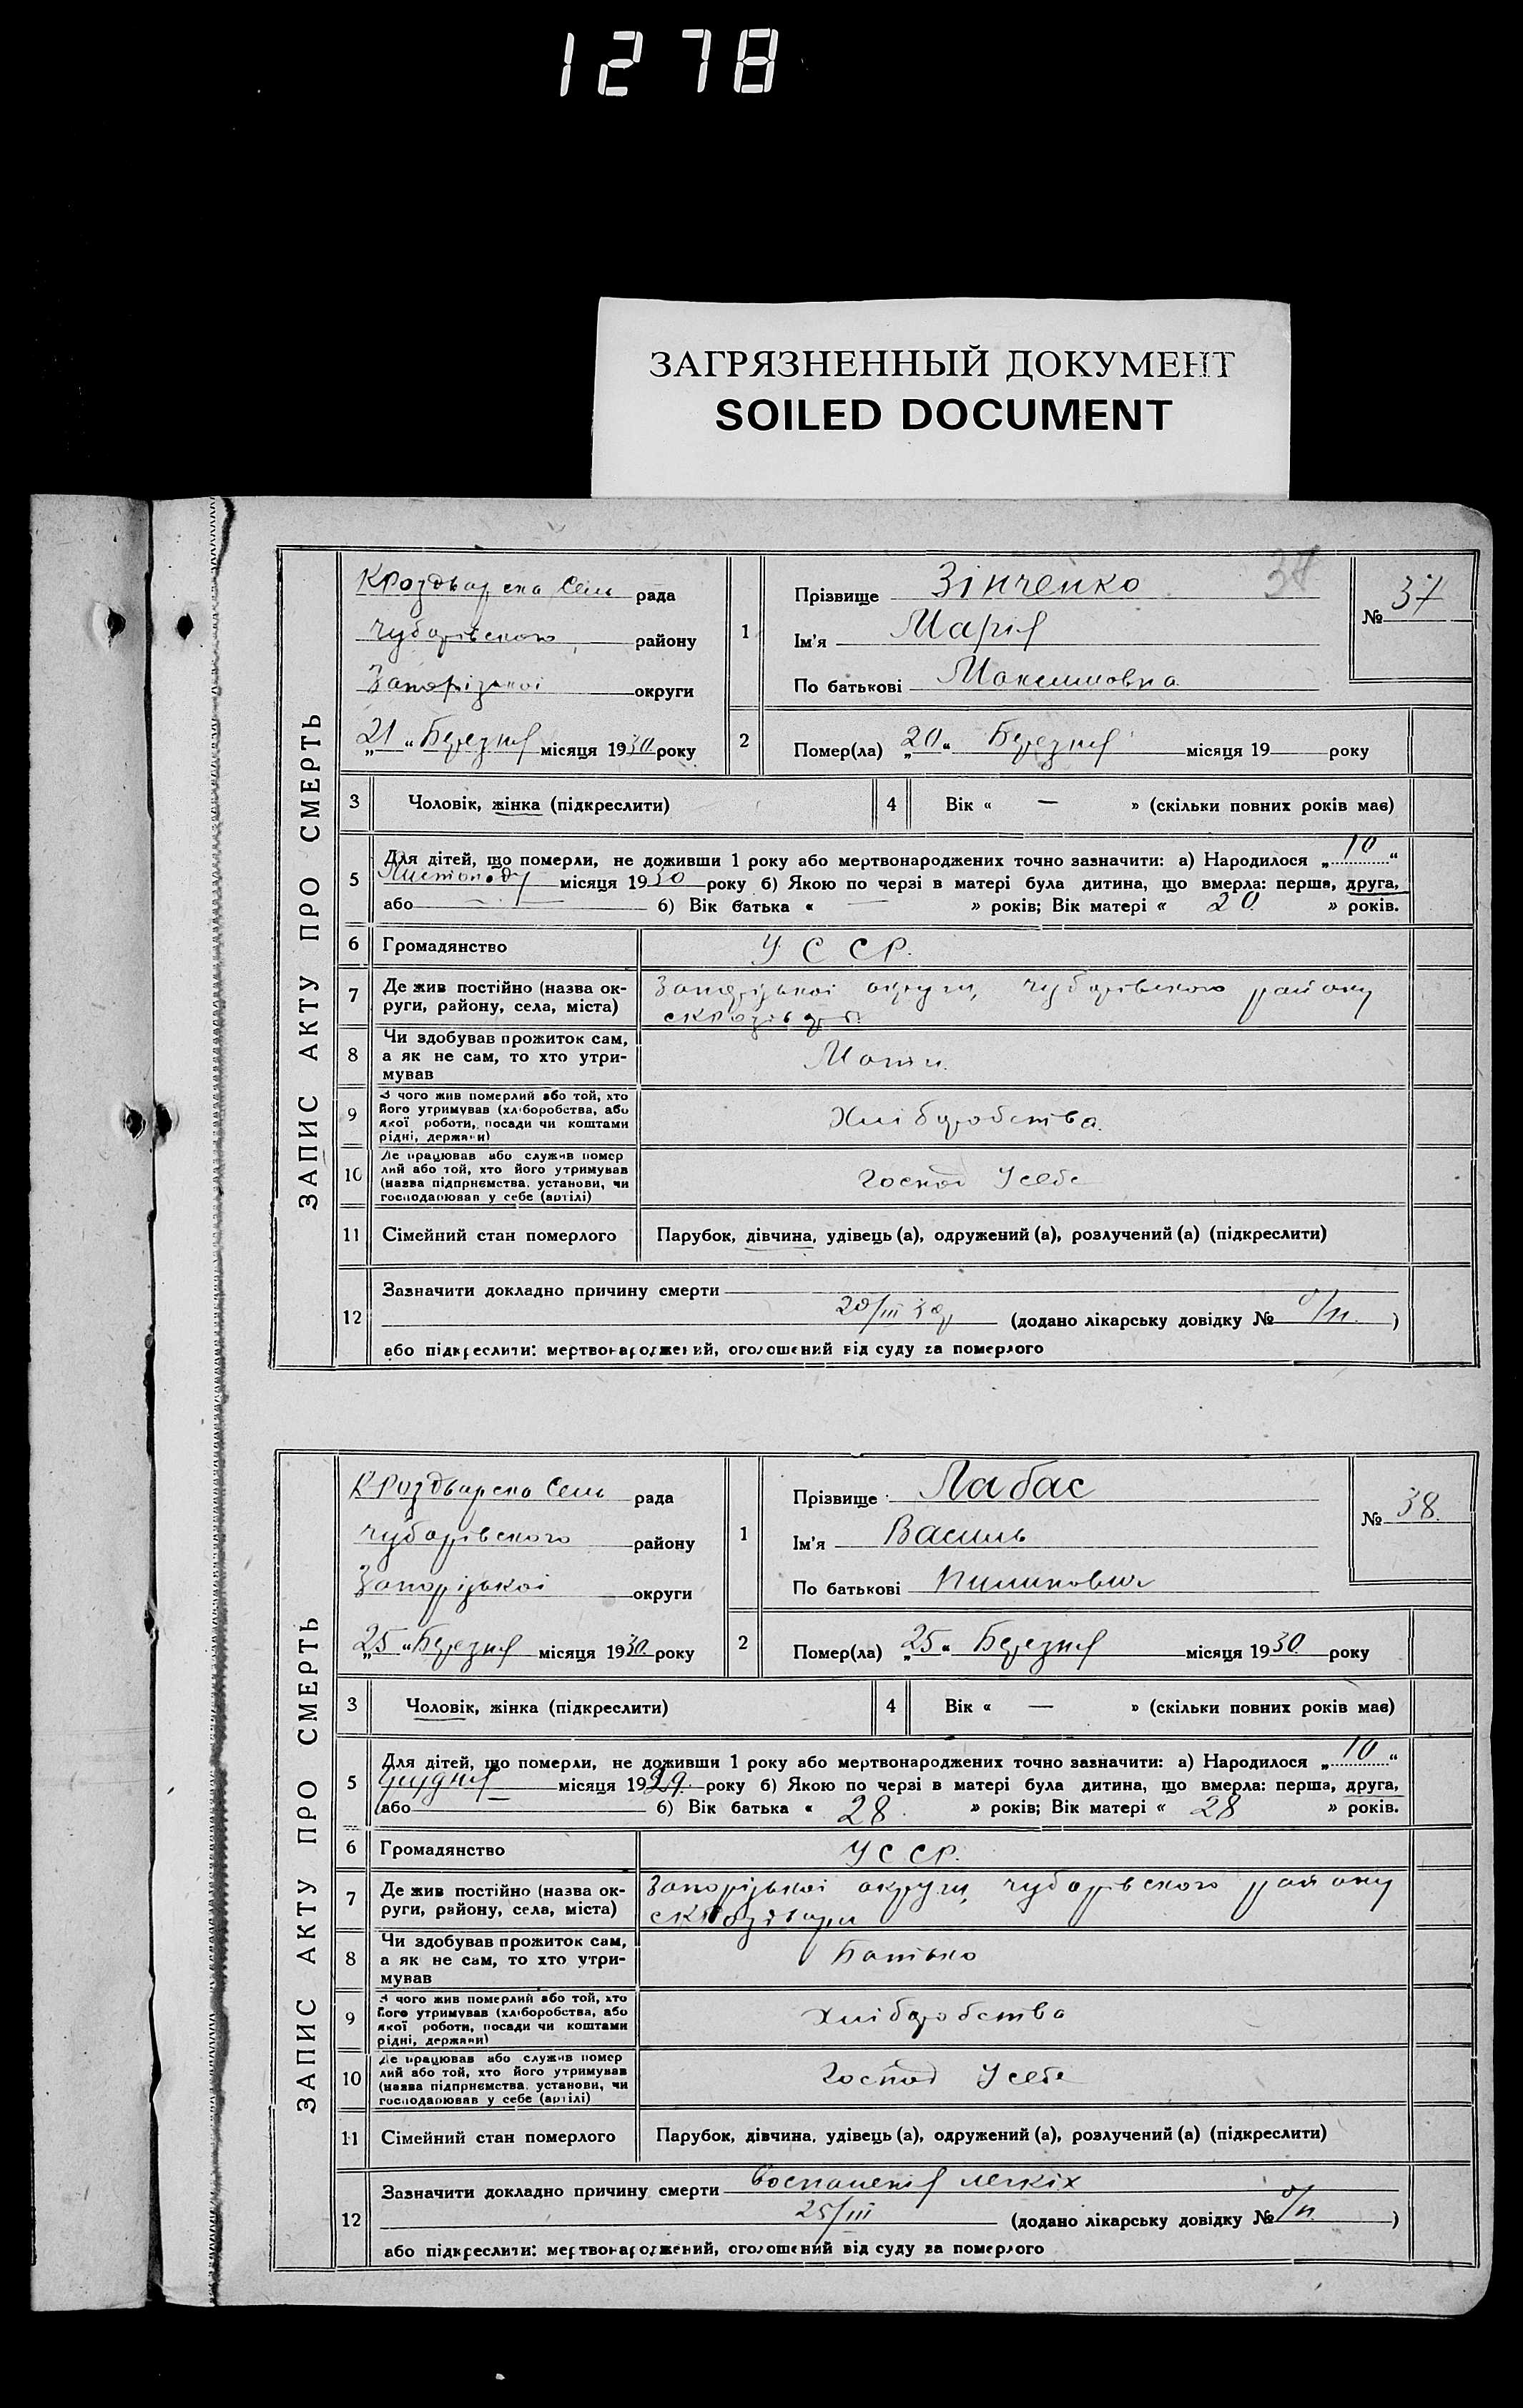 1278
ЗАГРЯЗНЕННЫЙ ДОКУМЕНТ
SOILED DOCUMENT
ЗАПИС АКТУ ПРО СМЕРТЬ
КРоздварсна Сель рада
Чубарівського району
Запорізкоі округи
„21“ Березня місяця 1930 року
1
Прізвище Зінченко
Ім'я Марія
По батькові Максимовна
38
№ 37
2
Помер(ла) „20“ Березня місяця 19 року
3 Чоловік, жінка (підкреслити)
4 Вік « — » (скільки повних років має)
5 Для дітей, що померли, не доживши 1 року або мертвонароджених точно зазначити: а) Народилося „10“
Листопаду місяця 1930 року б) Якою по черзі в матері була дитина, що вмерла: перша, друга,
або — б) Вік батька « — » років; Вік матері « 20 » років.
6 Громадянство У С С Р.
7 Де жив постійно (назва ок-
руги, району, села, міста)
Запорізькоі округи, Чубарівського району
8 Чи здобував прожиток сам,
а як не сам, то хто утри-
мував
Мати
9 З чого жив померлий або той, хто
його утримував (хліборобства, або
якої роботи, посади чи коштами
рідні, держави)
Хліборобства.
10 Де працював або служив помер
лий або той, хто його утримував
(назва підприємства, установи, чи
господарював у себе (артілі)
Господ У себе
11 Сімейний стан померлого Парубок, дівчина, удівець (а), одружений (а), розлучений (а) (підкреслити)
12 Зазначити докладно причину смерти
20/III 30р (додано лікарську довідку № )
або підкреслити: мертвонароджений, оголошений від суду за померлого
ЗАПИС АКТУ ПРО СМЕРТЬ
КРоздварсна Сель рада
Чубарівського району
Запорізькоі округи
„25“ Березня місяця 1930 року
1
Прізвище Лабас
Ім'я Василь
По батькові Пилипович
№ 38.
2
Помер(ла) „25“ Березня місяця 1930 року
3 Чоловік, жінка (підкреслити)
4 Вік « — » (скільки повних років має)
5 Для дітей, що померли, не доживши 1 року або мертвонароджених точно зазначити: а) Народилося „10“
Грудня місяця 1929 року б) Якою по черзі в матері була дитина, що вмерла: перша, друга,
або б) Вік батька « 28 » років; Вік матері « 28 » років.
6 Громадянство У С С Р.
7 Де жив постійно (назва ок-
руги, району, села, міста)
Запорізькоі округи, Чубарівського району
8 Чи здобував прожиток сам,
а як не сам, то хто утри-
мував
Батько
9 З чого жив померлий або той, хто
його утримував (хліборобства, або
якої роботи, посади чи коштами
рідні, держави)
Хліборобства
10 Де працював або служив помер
лий або той, хто його утримував
(назва підприємства, установи, чи
господарював у себе (артілі)
Господ У себе
11 Сімейний стан померлого Парубок, дівчина, удівець (а), одружений (а), розлучений (а) (підкреслити)
12 Зазначити докладно причину смерти Воспаленія легкіх
25/III (додано лікарську довідку № )
або підкреслити: мертвонароджений, оголошений від суду за померлого